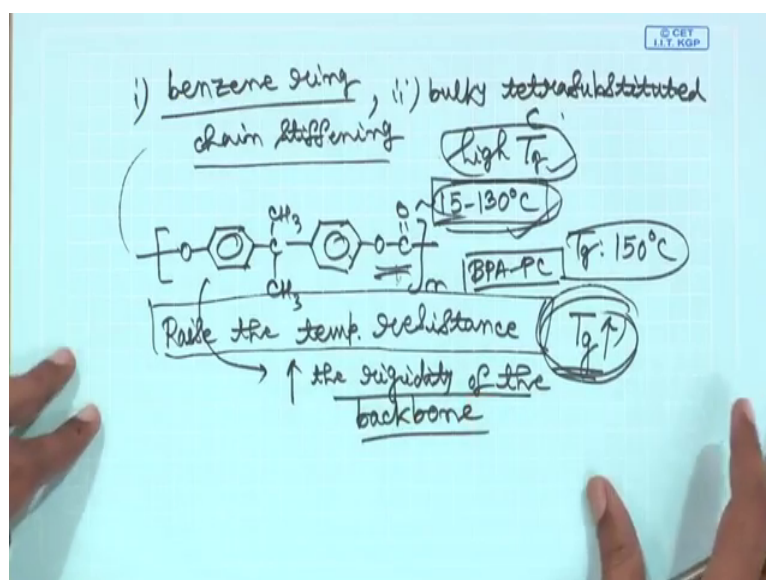 © CET
I.I.T. KGP
i) benzene ring, ii) bulky tetrasubstituted
C
chain stiffening
high Tg
15-130°C
O
CH3
O C O C
CH3
n
BPA-PC
Tg: 150°C
Raise the temp. resistance
Tg ↑
→ ↑ the rigidity of the
backbone